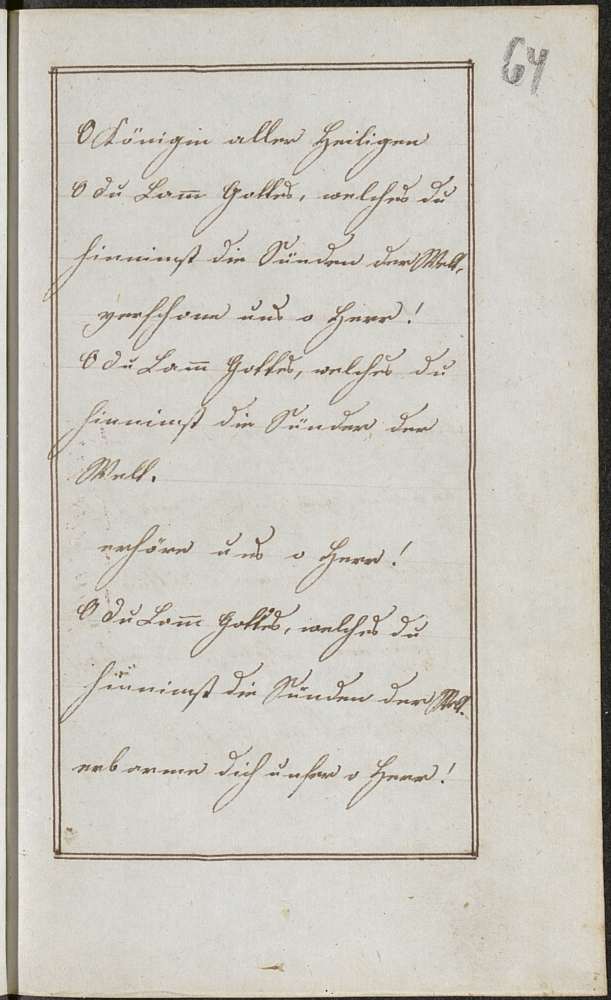 64
O Königin aller Heiligen
O du Lam̅ Gottes, welches du
hinnimst die Sünden der Welt,
verschone uns o Herr!
O du Lam̅ Gottes, welches du
hinnimst die Sünden der
Welt.
erhöre uns o Herr!
O du Lam̅ Gottes, welches du
hinnimst die Sünden der Welt.
erbarme dich unser o Herr!